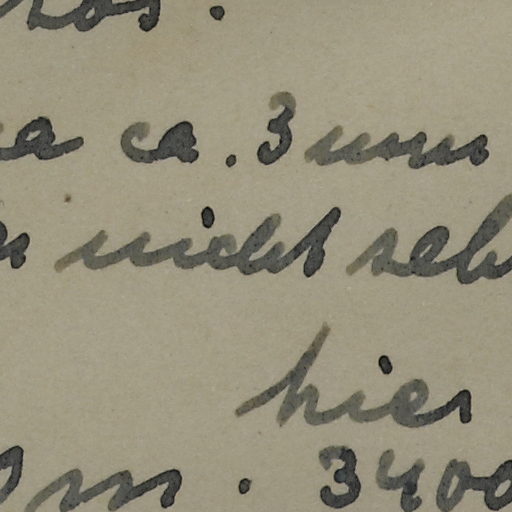 ca. 3 mm
nicht seh
hier
m. 3400